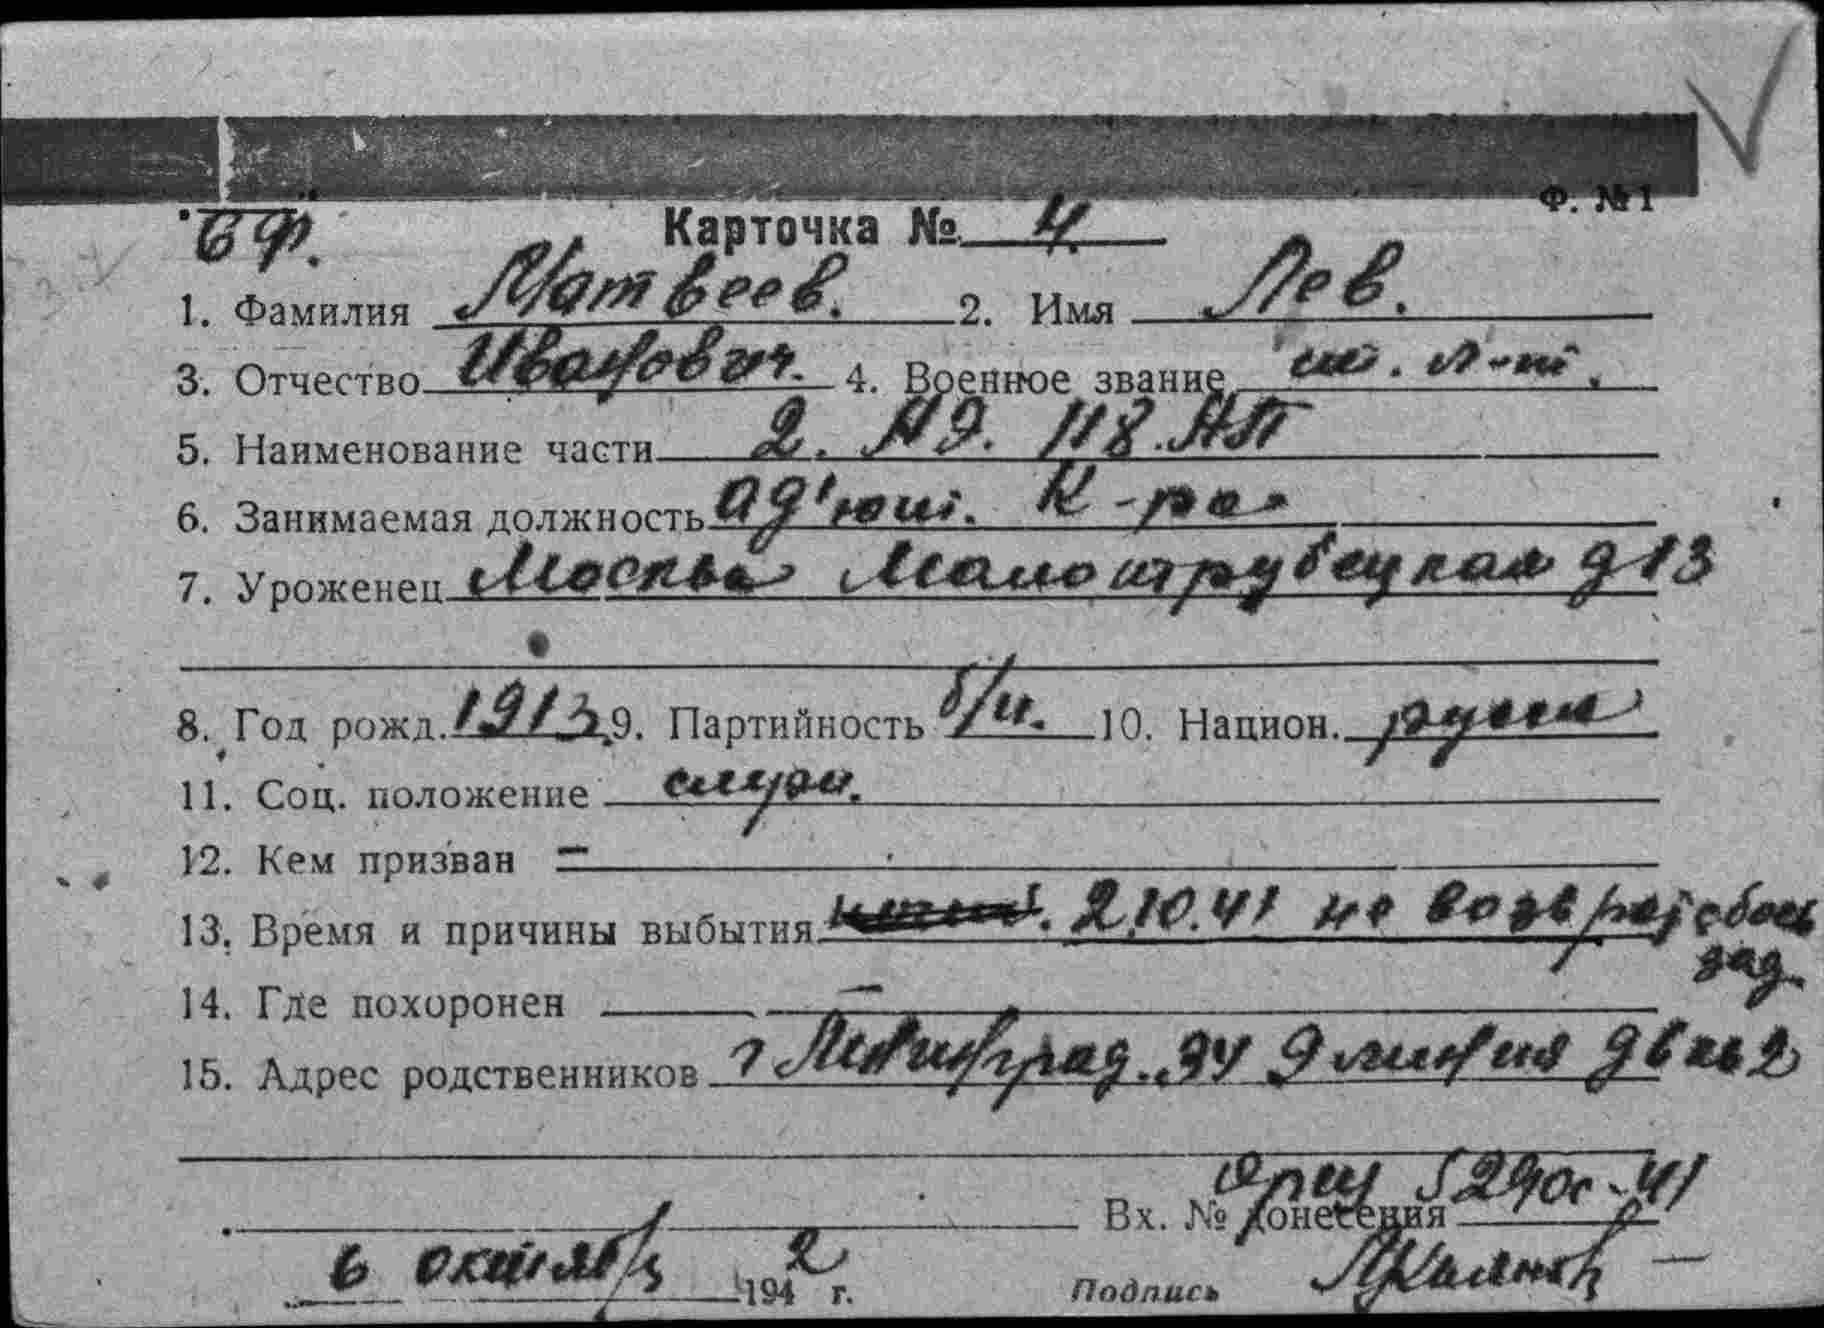 Ф. №1
Карточка № 4
1. Фамилия Матвеев. 2. Имя Лев.
3. Отчество Иванович. 4. Военное звание мл. л-нт.
5. Наименование части 2. АЭ. 118. АП
6. Занимаемая должность Ад'ют.
7. Уроженец Москва Малотрубецкая д 13
8. Год рожд. 1913 9. Партийность б/п. 10. Национ. русск
11. Соц. положение служ.
12. Кем призван —
13. Время и причины выбытия 2.10.41 не возвр с боев
зад.
14. Где похоронен —
15. Адрес родственников г Ленинград. 9 линия
Вх. № донесения -41
6 октября 1942 г. Подпись